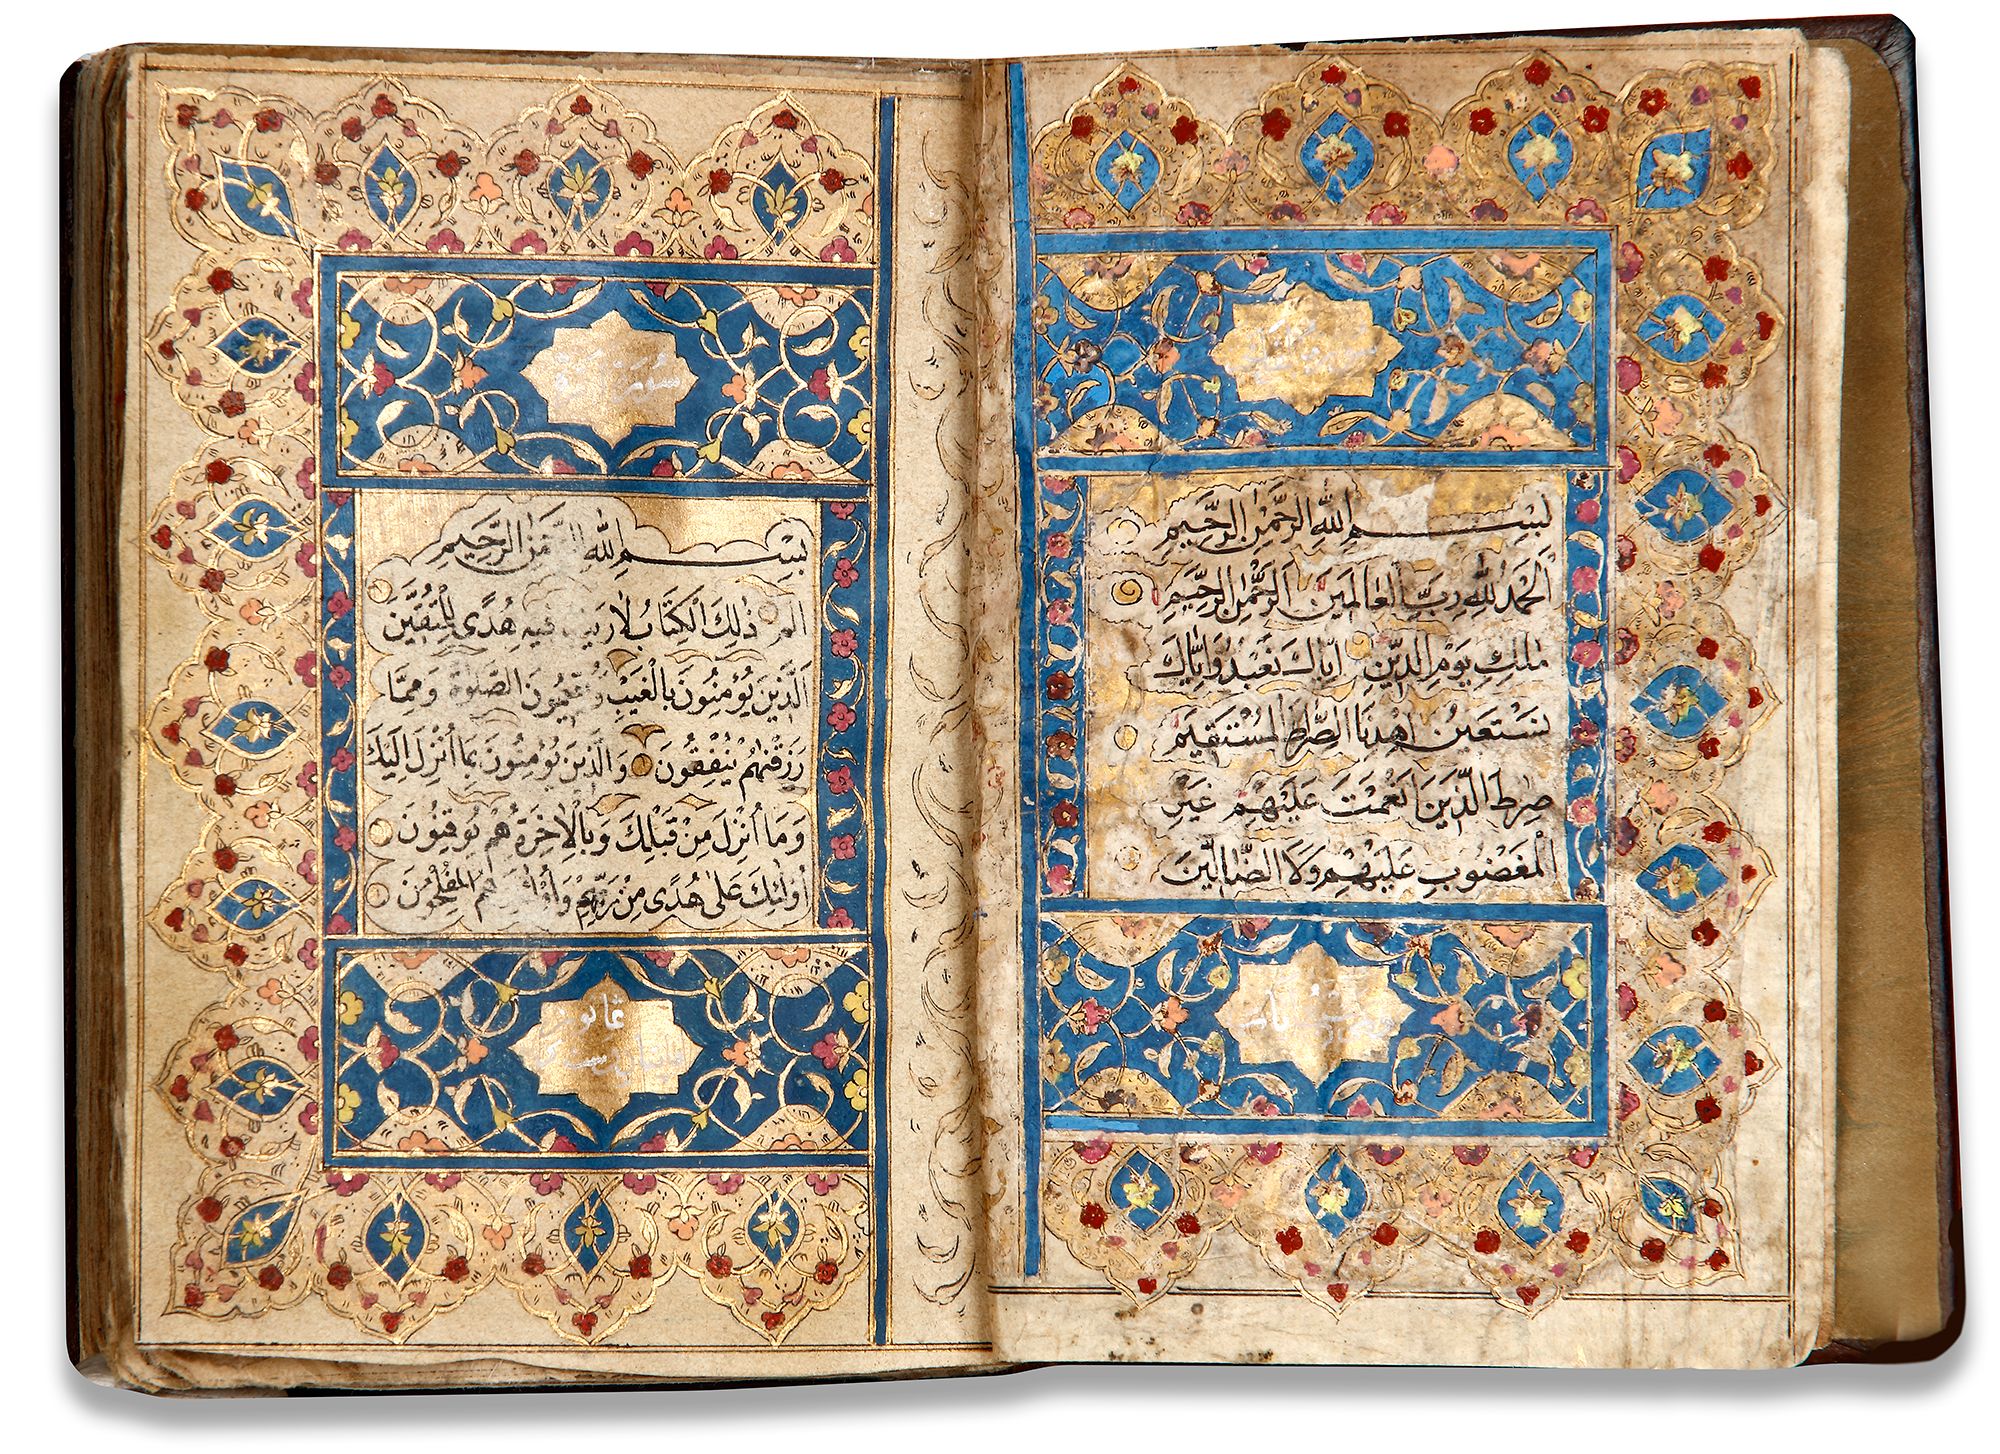 بِسْمِ اللهِ الرَّحْمٰنِ الرَّحِيمِ
اَلْحَمْدُ لِلّٰهِ رَبِّ الْعَالَمِينَ اَلرَّحْمٰنِ الرَّحِيمِ
مٰلِكِ يَوْمِ الدِّينِ اِيَّاكَ نَعْبُدُ وَاِيَّاكَ
نَسْتَعِينُ اِهْدِنَا الصِّرٰطَ الْمُسْتَقِيمَ
صِرٰطَ الَّذِينَ اَنْعَمْتَ عَلَيْهِمْ غَيْرِ
الْمَغْضُوبِ عَلَيْهِمْ وَلَا الضَّالِّينَ
سورة
بِسْمِ اللهِ الرَّحْمٰنِ الرَّحِيمِ
الم ذٰلِكَ الْكِتَابُ لَا رَيْبَ فِيهِ هُدًى لِلْمُتَّقِينَ
اَلَّذِينَ يُؤْمِنُونَ بِالْغَيْبِ وَيُقِيمُونَ الصَّلٰوةَ وَمِمَّا
رَزَقْنٰهُمْ يُنْفِقُونَ وَالَّذِينَ يُؤْمِنُونَ بِمَا اُنْزِلَ اِلَيْكَ
وَمَا اُنْزِلَ مِنْ قَبْلِكَ وَبِالْاٰخِرَةِ هُمْ يُوقِنُونَ
اُولٰئِكَ عَلٰى هُدًى مِنْ رَبِّهِمْ وَاُولٰئِكَ هُمُ الْمُفْلِحُونَ